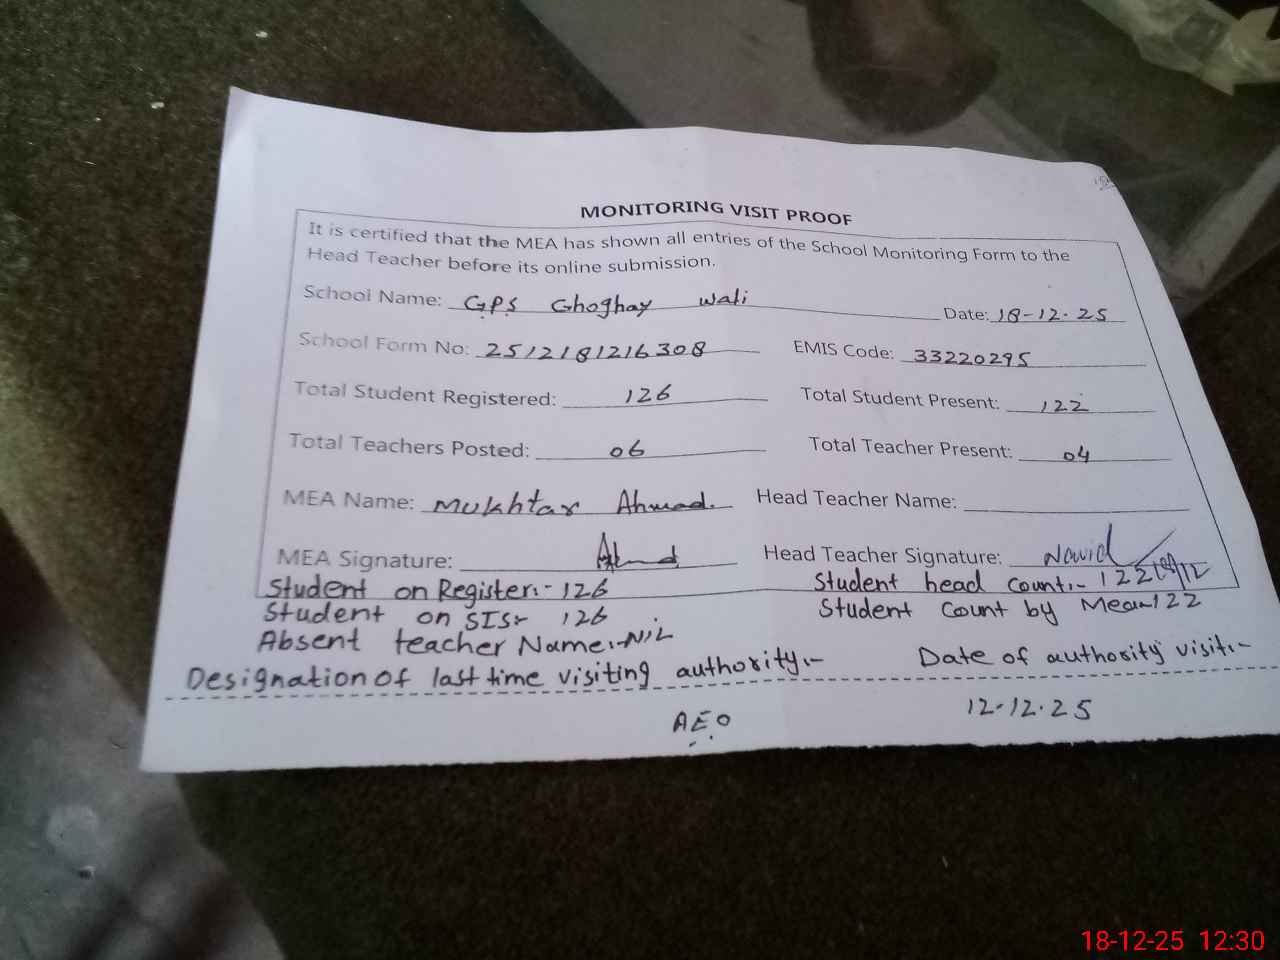 MONITORING VISIT PROOF
It is certified that the MEA has shown all entries of the School Monitoring Form to the
Head Teacher before its online submission.
School Name: GPS Ghoghay Wali Date: 18-12-25
School Form No: 2512181216308 EMIS Code: 33220295
Total Student Registered: 126 Total Student Present: 122
Total Teachers Posted: 06 Total Teacher Present: 04
MEA Name: Mukhtar Ahmad. Head Teacher Name:
MEA Signature: Head Teacher Signature: Navid
Student on Register:- 126 Student head count:- 122
Student on SIS:- 126 Student Count by Mea:-122
Absent teacher Name:-NiL
Designation of last time visiting authority:- Date of authority visit:-
AEO 12-12-25
18-12-25 12:30